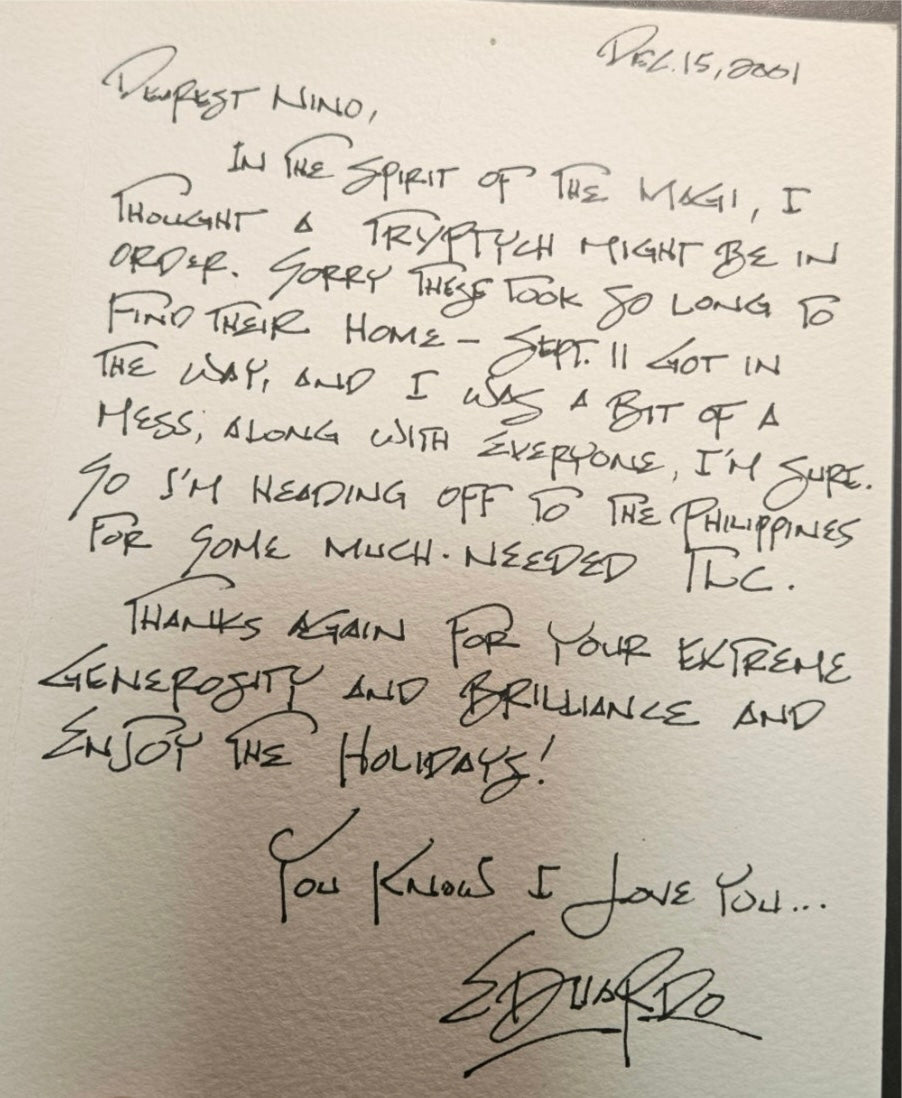 DEC. 15, 2001
DEAREST NINO,
IN THE SPIRIT OF THE MAGI, I
THOUGHT A TRYPTYCH MIGHT BE IN
ORDER. SORRY THESE TOOK SO LONG TO
FIND THEIR HOME – SEPT. 11 GOT IN
THE WAY, AND I WAS A BIT OF A
MESS, ALONG WITH EVERYONE, I'M SURE.
SO I'M HEADING OFF TO THE PHILIPPINES
FOR SOME MUCH-NEEDED TLC.
THANKS AGAIN FOR YOUR EXTREME
GENEROSITY AND BRILLIANCE AND
ENJOY THE HOLIDAYS!
YOU KNOW I LOVE YOU...
EDUARDO